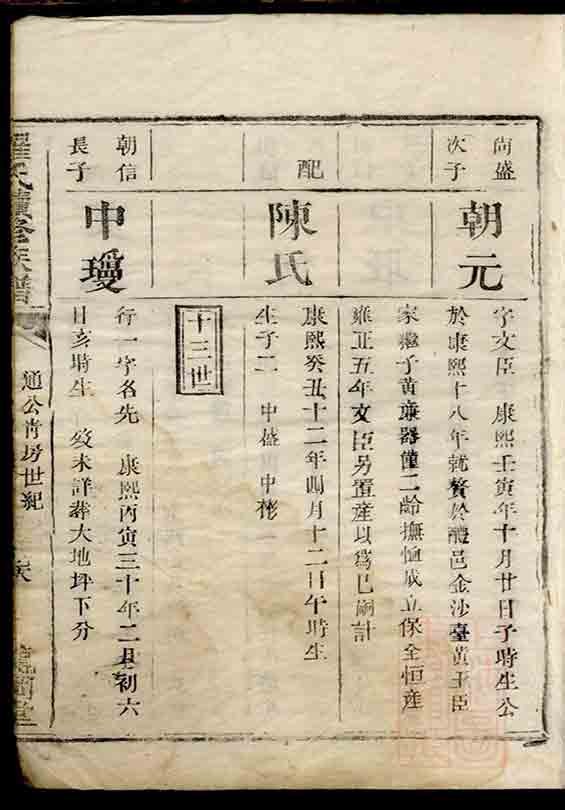 尚盛
次子
朝元
字文臣 康熙壬寅年十月廿日子時生公
於康熙十八年就贅於醴邑金沙臺黃玉臣
家繼子黃廉器僅二齡撫恒成立保全恒産
雍正五年文臣另置産以為已嗣計
配
陳氏
康熙癸丑十二年四月十二日午時生
生子二 中盛 中
十三世
朝信
長子
中璦
行一字名先 康熙丙寅三十年二月初六
日亥時生 歿未詳葬大地坪下分
羅氏續修族譜
通公青房世紀